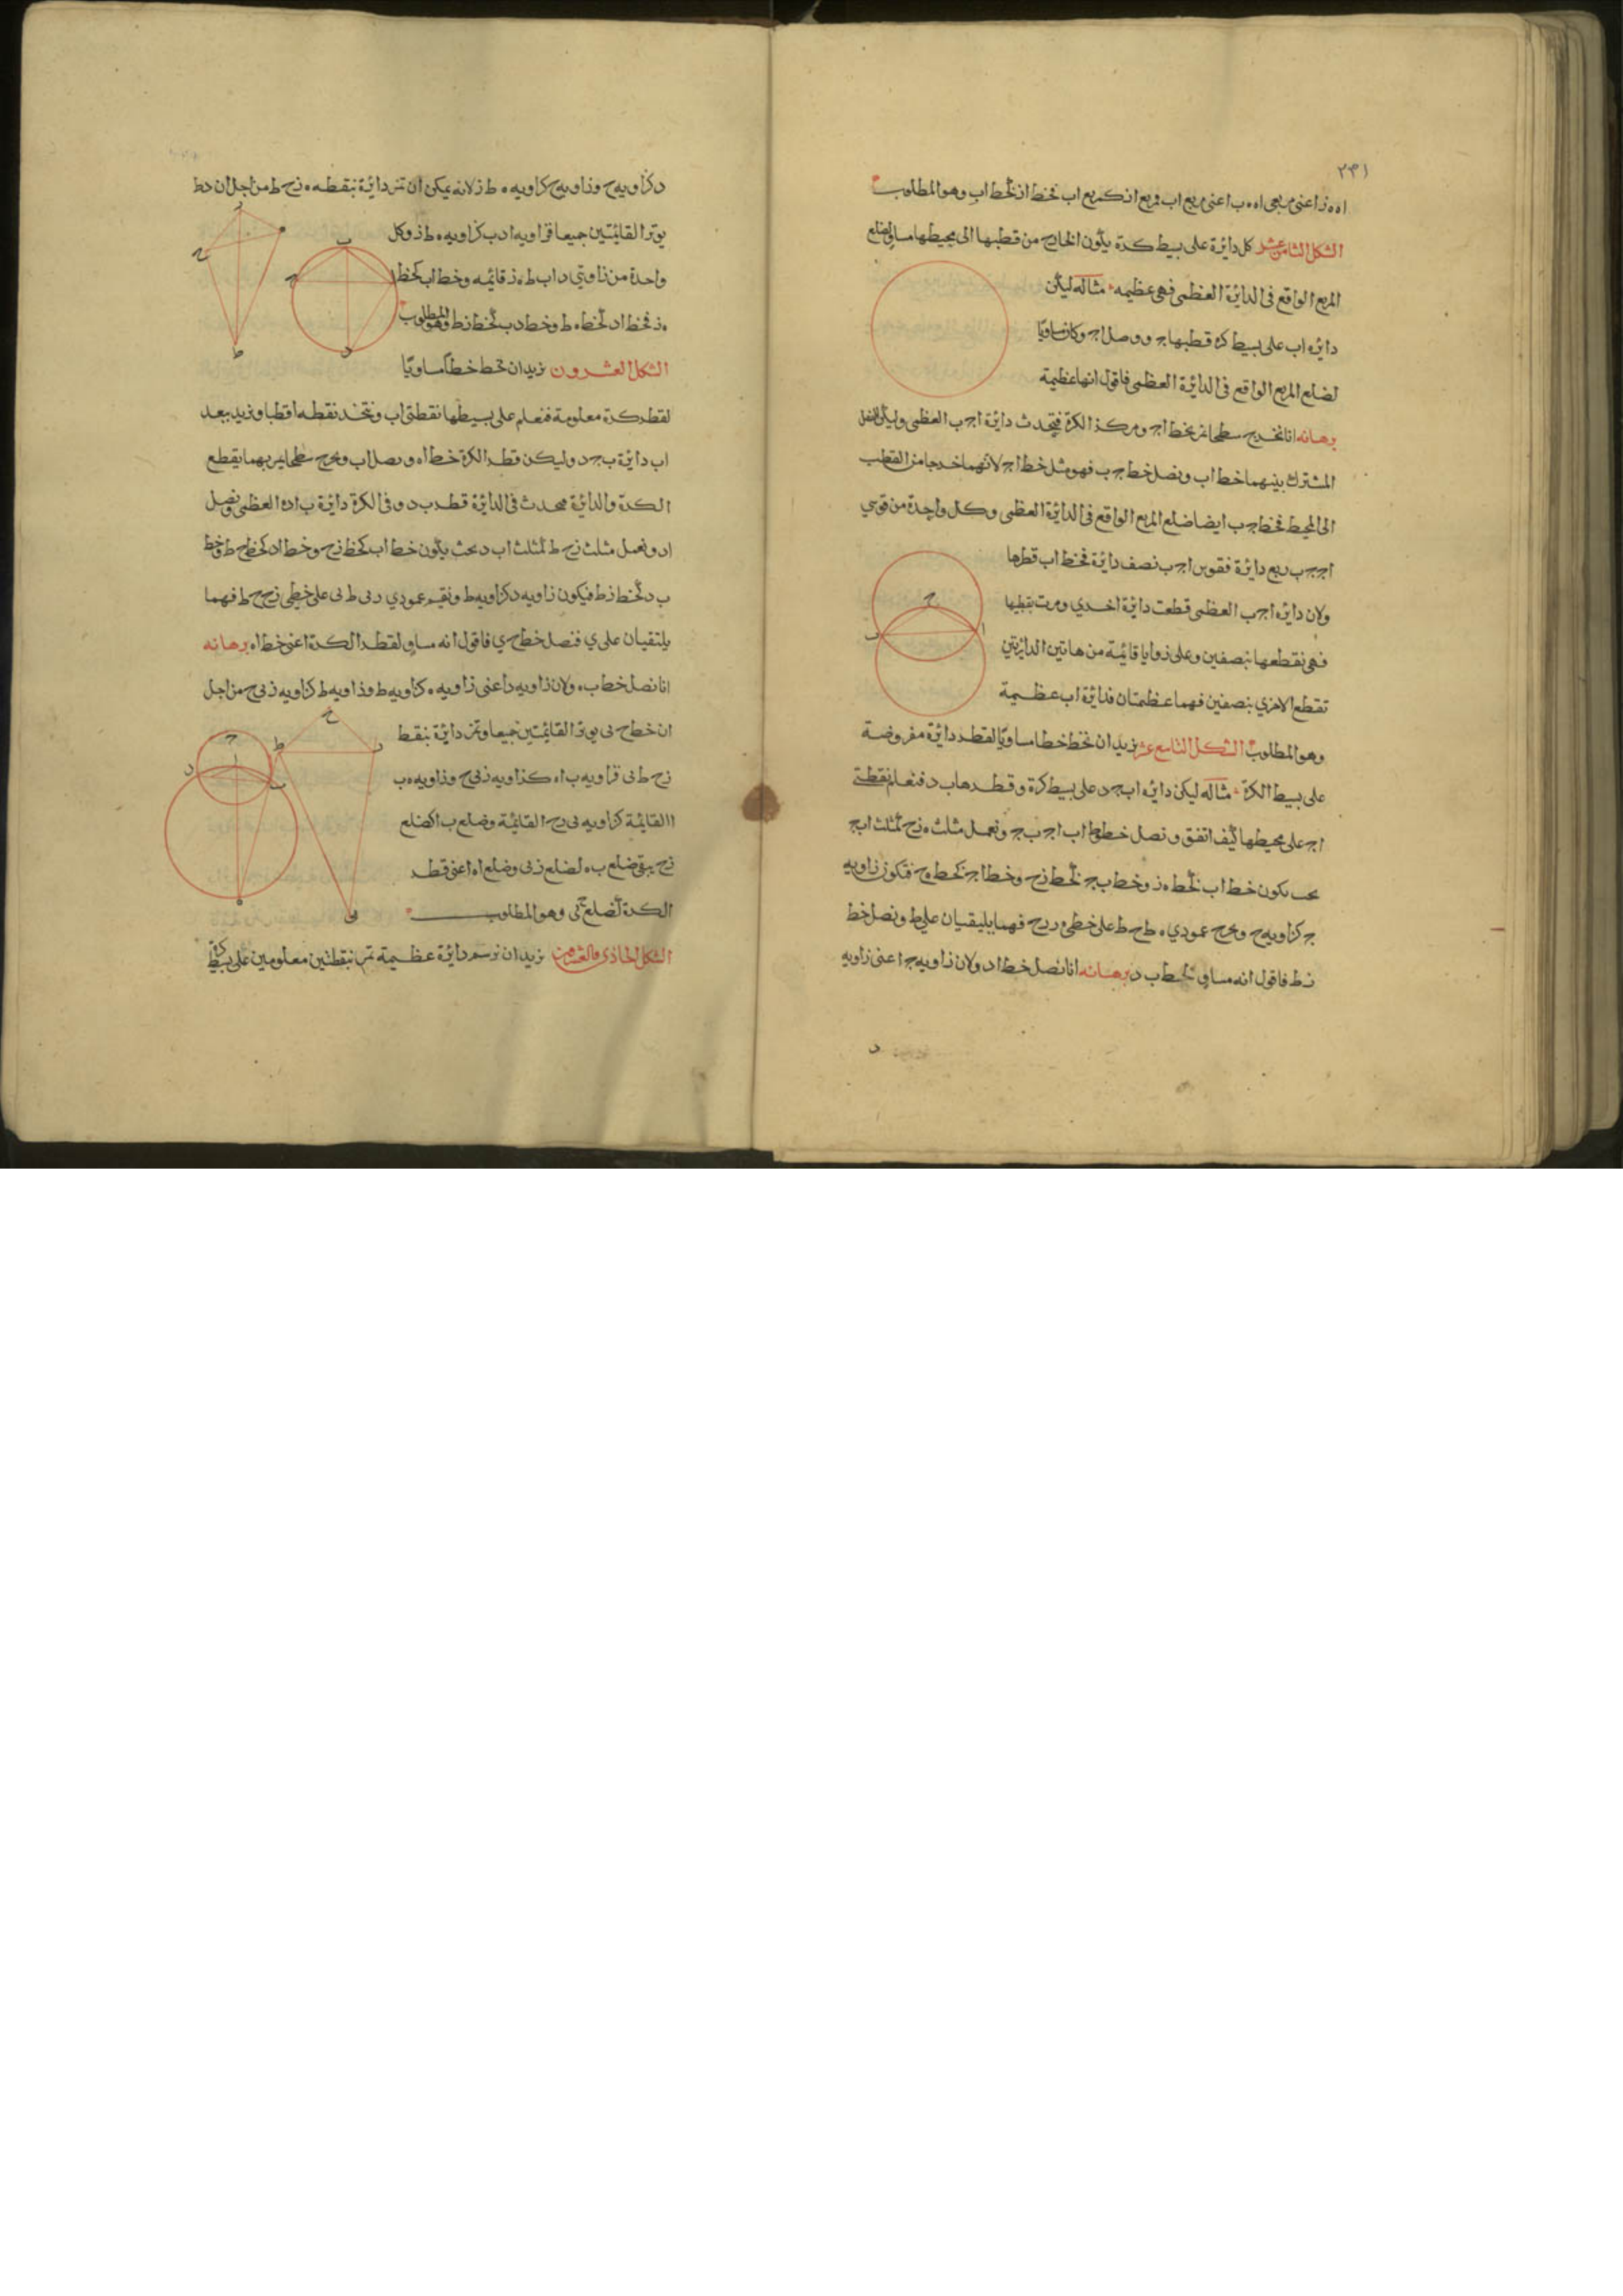 ٣٣١
اه ه ز اعنى مربعى اه ه ب اعنى مربع اب فمربع از كمربع اب فخط از كخط اب وهو المطلوب
الشكل الثامن عشر كل دائرة على بسيط كرة يكون الخارج من قطبها الى محيطها مساو لضلع
المربع الواقع فى الدائرة العظمى فهى عظيمه مثاله ليكن
دائره اب على بسيط كره قطبها ج ووصل اج وكان مساويا
لضلع المربع الواقع فى الدائرة العظمى فاقول انها عظيمة
برهانه انا نخرج سطحا يمر بخط اج ومركز الكرة فيحدث دائرة اج ب العظمى وليكن الفصل
المشترك بينهما خط اب ونصل خط ج ب فهو مثل خط اج لانهما خرجا من القطب
الى المحيط فخط ج ب ايضا ضلع المربع الواقع فى الدائرة العظمى وكل واحدة من قوسي
اج ج ب ربع دائرة فقوس اج ب نصف دائرة فخط اب قطرها
ولان دائره اج ب العظمى قطعت دائرة اخرى ومرت بقطبها
فهى تقطعها بنصفين وعلى زوايا قائمة من هاتين الدائرتين
تقطع الاخرى بنصفين فهما عظيمتان فدائرة اب عظيمة
وهو المطلوب الشكل التاسع عشر نريد ان نخط خطا مساويا لقطر دائرة مفروضة
على بسيط الكرة مثاله ليكن دائره اب ج د على بسيط كرة وقطرها ب د فنعلم نقطتى
اج على محيطها كيف اتفق ونصل خطوط اب اج ب ج ونعمل مثلث ه ز ح كمثلث اب ج
بحيث يكون خط اب كخط ه ز وخط ب ج كخط ز ح وخط اج كخط ه ح فتكون زاويه
ج كزاويه ح ونخرج عمودي ه ط ح ط على خطى فهما يلتقيان على ط ونصل خط
ز ط فاقول انه مساو لخط ب د برهانه انا نصل خط اد ولان زاويه ج اعنى زاويه
د
د كزاويه ح وزاويه ح كزاويه ه ط ز لانه يمكن ان تمر دائرة بنقطه ه ز ح ط من اجل ان خط
يوتر القائمتين جميعا فزاويه ادب كزاويه ه ط ز وكل
واحدة من زاويتي د اب ط ه ز قائمه وخط اب كخط
ه ز فخط اد كخط ه ط وخط دب كخط ز ط وهو المطلوب
الشكل العشرون نريد ان نخط خطا مساويا
لقطر كرة معلومة فنعلم على بسيطها نقطتى اب ونتخذ نقطه ا قطبا وندير ببعد
اب دائرة ب ج د وليكن قطر الكرة خط اه ونصل اب ونخرج سطحا يمر بهما يقطع
الكرة والدائرة فيحدث فى الدائرة قطر ب د وفى الكرة دائرة ب اد ه العظمى ونصل
اد ونعمل مثلث ز ح ط كمثلث اب د بحيث يكون خط اب كخط ز ح وخط اد كخط ح ط وخط
ب د كخط ز ط فيكون زاويه د كزاويه ط ونقيم عمودي ز ى ط ى على خطى ز ح ح ط فهما
يلتقيان على ي فنصل خط ح ي فاقول انه مساو لقطر الكرة اعنى خط اه برهانه
انا نصل خط ب ه ولان زاويه د اعنى زاويه ه كزاويه ط وزاويه ط كزاويه ز ى ح من اجل
ان خط ح ى يوتر القائمتين جميعا وتمر دائرة بنقط
ز ح ط ى فزاويه ب اه كزاويه ز ى ح وزاويه ه ب
ا القائمة كزاويه ى ز ح القائمة وضلع ب ا كضلع
ز ح يبقى ضلع ب ه كضلع ز ى وضلع اه اعنى قطر
الكرة كضلع ح ى وهو المطلوب
الشكل الحادى والعشرون نريد ان نرسم دائرة عظيمة تمر بنقطتين معلومتين على بسيط كرة